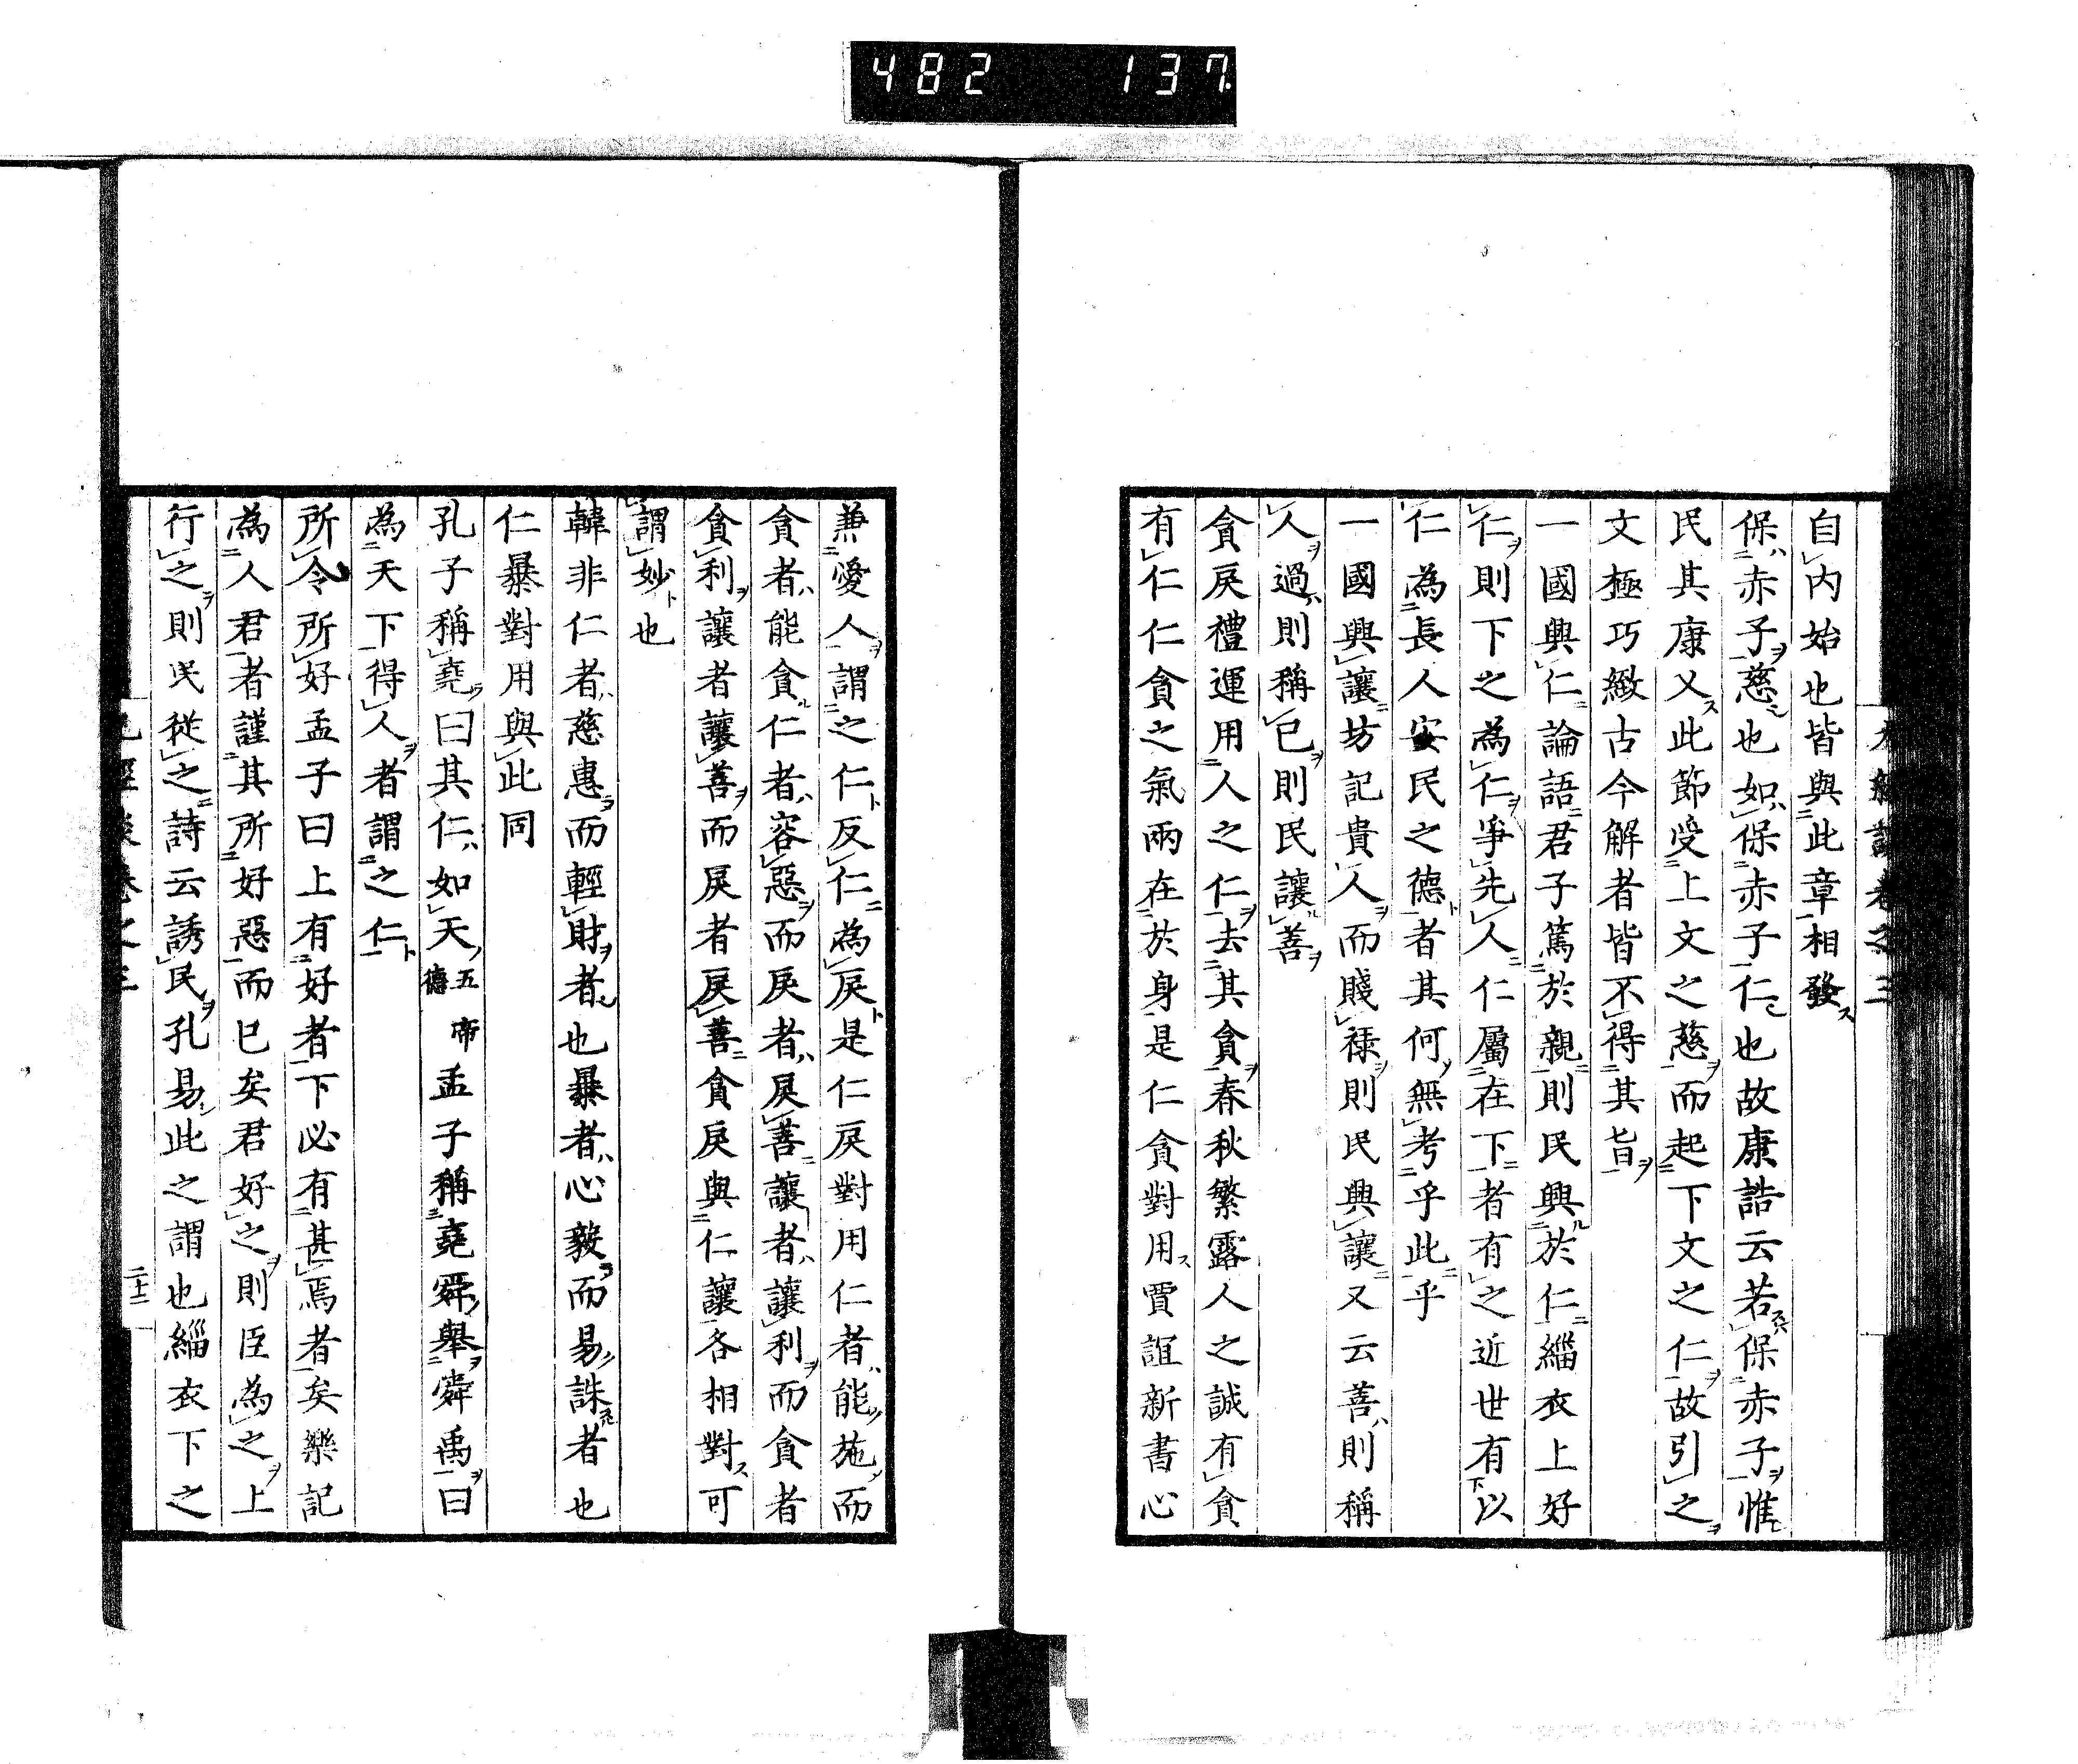 482 137
自內始也皆與此章相發
保赤子慈也如保赤子仁也故康誥云若保赤子惟
民其康乂此節受上文之慈而起下文之仁故引之
文極巧緻古今解者皆不得其旨
一國興仁論語君子篤於親則民興於仁緇衣上好
仁則下之為仁爭先人仁屬在下者有之近世有以
仁為長人安民之德者其何無考乎此乎
一國興讓坊記貴人而賤祿則民興讓又云善則稱
人過則稱已則民讓善
貪戾禮運用人之仁去其貪春秋繁露人之誠有貪
有仁仁貪之氣兩在於身是仁貪對用賈誼新書心
兼愛人謂之仁反仁為戾是仁戾對用仁者能施而
貪者能貪仁者容惡而戾者戾善讓者讓利而貪者
貪利讓者讓善而戾者戾善貪戾與仁讓各相對可
謂妙也
韓非仁者慈惠而輕財者也暴者心毅而易誅者也
仁暴對用與此同
孔子稱堯曰其仁如天五帝德孟子稱堯舜舉舜禹曰
為天下得人者謂之仁
所令所好孟子曰上有好者下必有甚焉者矣樂記
為人君者謹其所好惡而已矣君好之則臣為之上
行之則民從之詩云誘民孔易此之謂也緇衣下之
經談卷之三
二十二